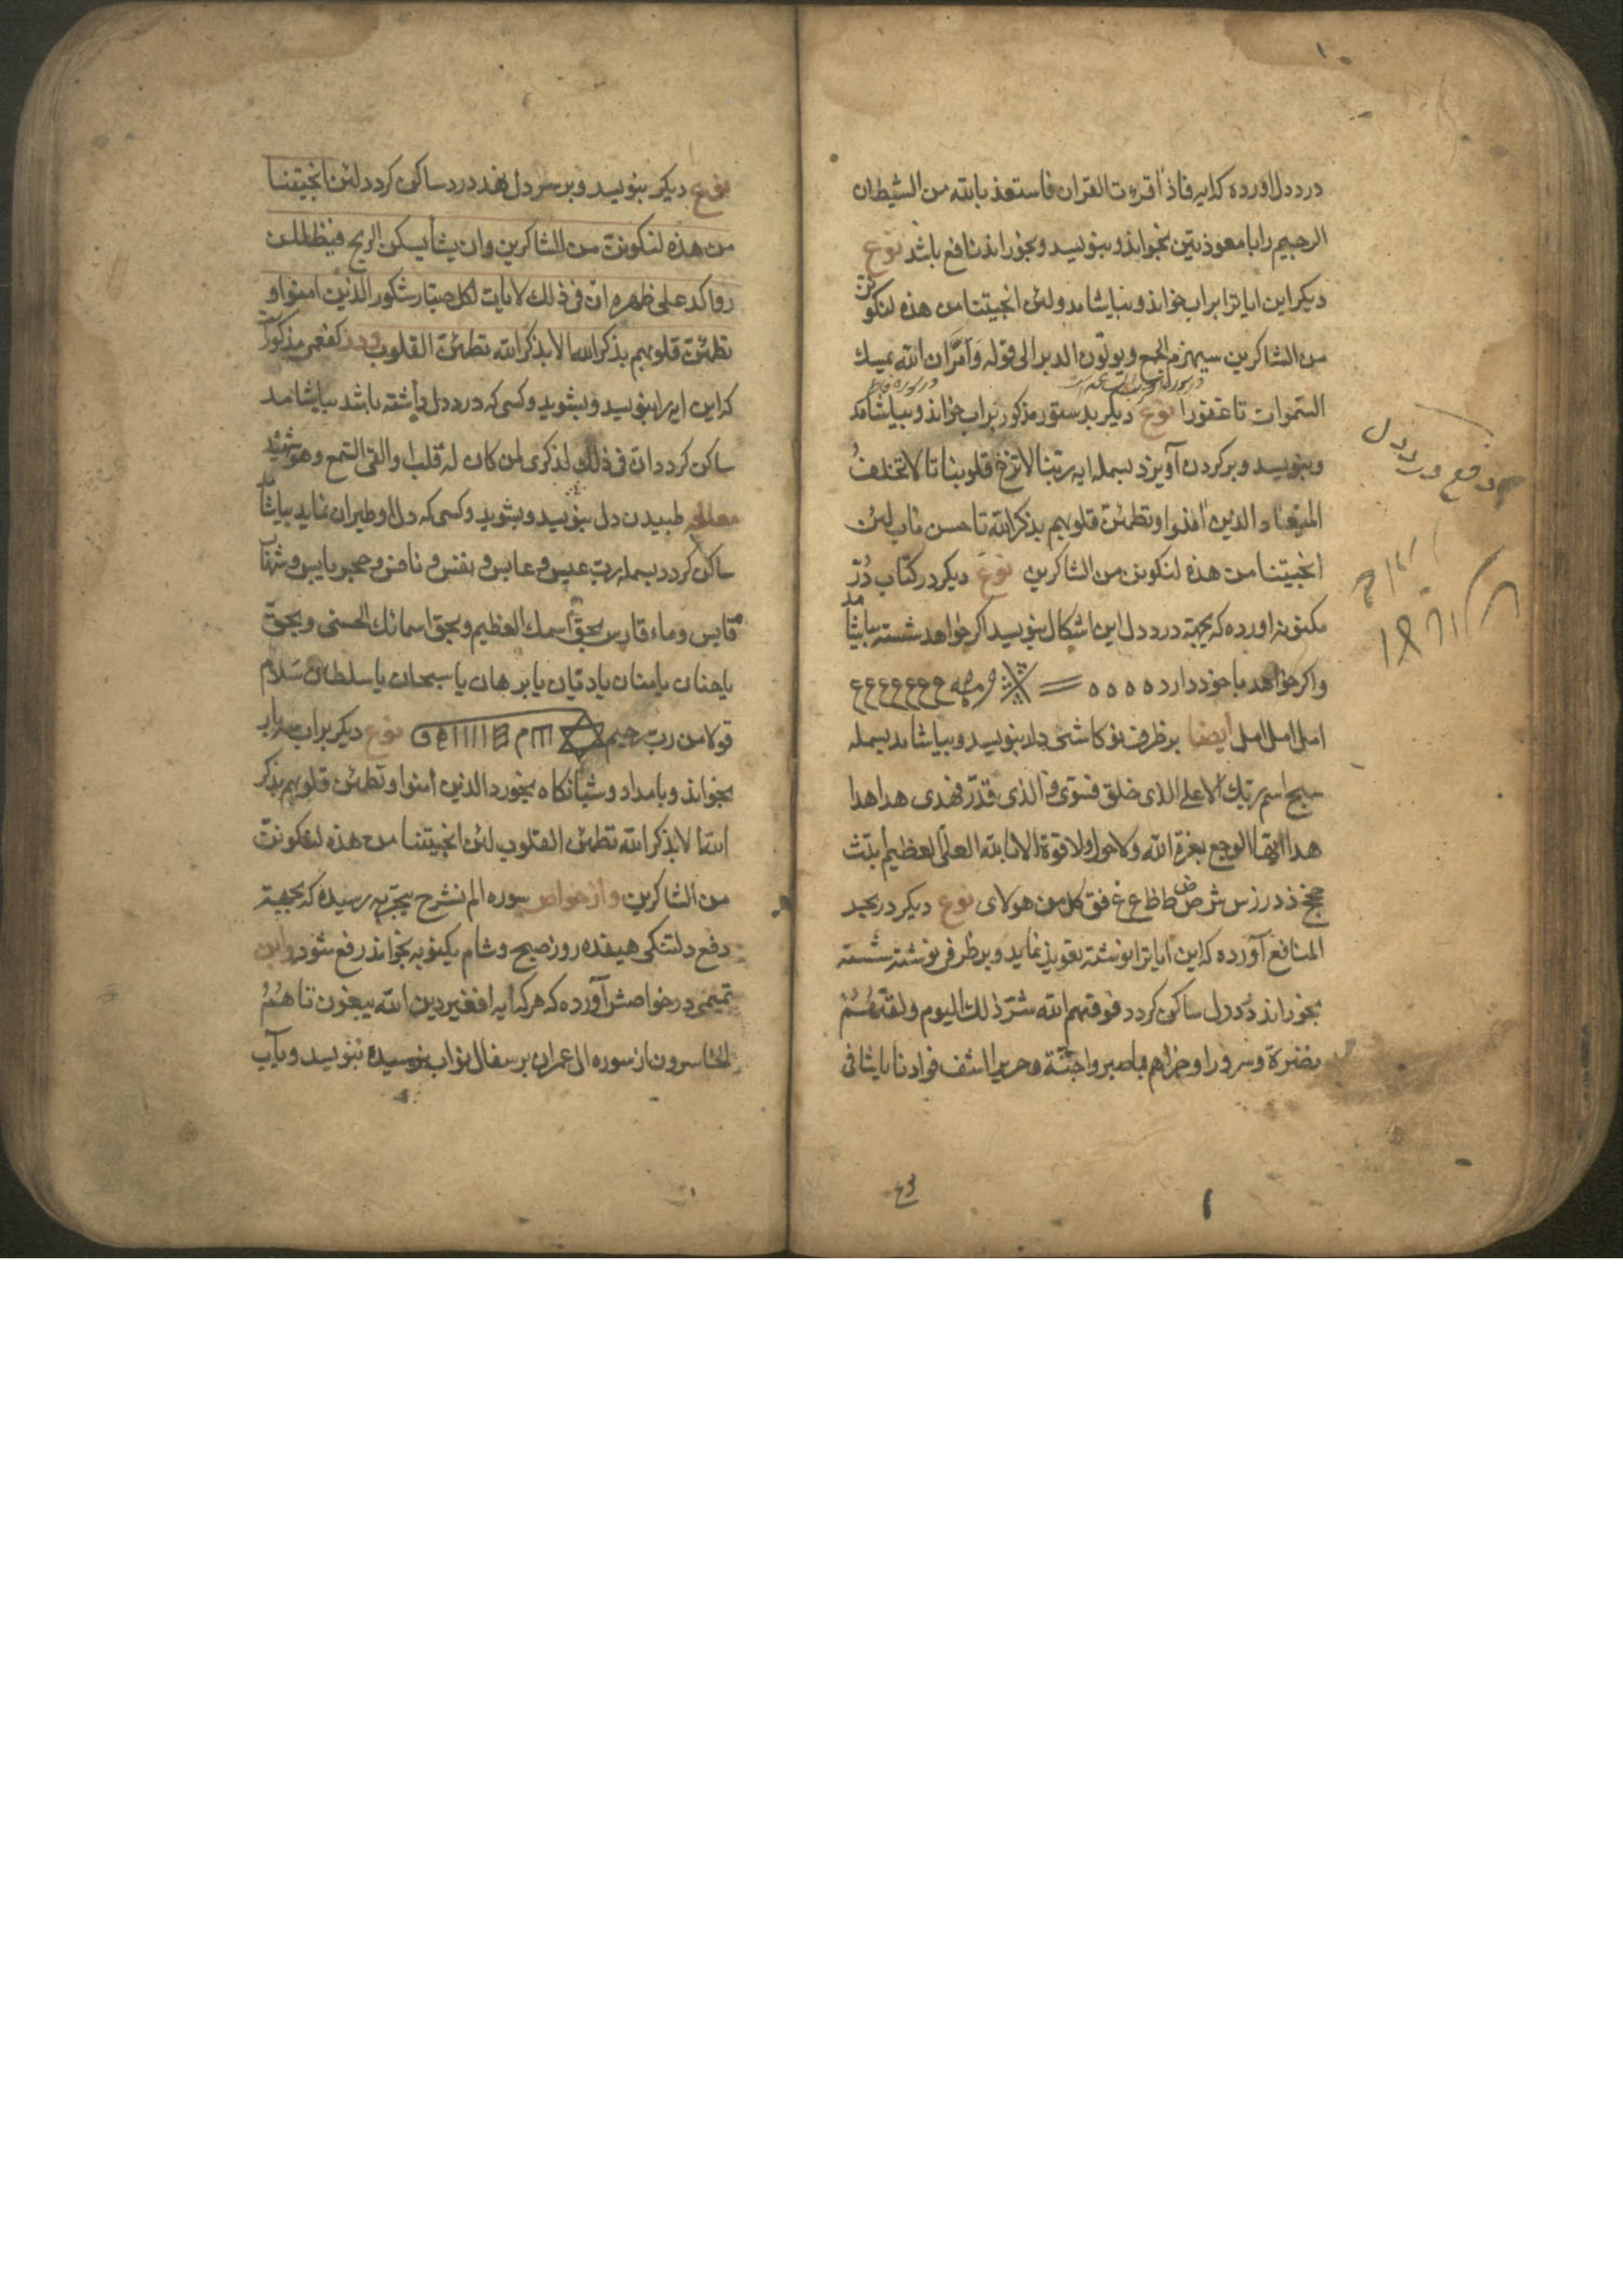 درد دل اورده که ایه فاذا قرءت القران فاستعذ بالله من الشیطان
الرجیم را با معوذتین بخواند و بنویسد و بخوراند نافع باشد نوع
دیکر این ایاترا بر اب خواند و بیاشامد ولئن انجیتنا من هذه لنکونن
من الشاکرین سیهزم الجمع ویولون الدبر الی قوله وامر ان الله یمسک
السموات تا غفورا نوع دیکر بدستور مذکور بر اب خواند و بیاشامد
و بنویسد و بر کردن آویزد بسمله ایه ربنا لا تزغ قلوبنا تا لا تخلف
المیعاد الذین امنوا وتطمئن قلوبهم بذکر الله تا حسن ماب لئن
انجیتنا من هذه لنکونن من الشاکرین نوع دیکر در کتاب در
مکنونه اورده که بجهته درد دل این اشکال بنویسد اکر خواهد شسته بیاشامد
و اکر خواهد با خود دارد ه ه ه ه
امل امل امل ایضا بر ظرف نو کاشی دار بنویسد و بیاشامد بسمله
سبح اسم ربک الاعلی الذی خلق فسوی والذی قدر فهدی هدا هدا
هدا ایها الوجع بعزة الله ولا حول ولا قوة الا بالله العلی العظیم ابتث
جحخ ذدرزس ش ص ض ط ظ ع غ فق کل من هولای نوع دیکر در بحر
المنافع آورده که این ایاترا نوشته تعویذ نماید و بر ظرفی نوشته شسته
بخوراند درد دل ساکن کردد فوقیهم الله شر ذلک الیوم ولقیهم
نضرة وسرورا وجزاهم بما صبروا جنة وحریرا اشف فوادنا یا شافی
دفع درد دل
نوع دیکر بنویسد و بر سر دل بندد درد ساکن کردد لئن انجیتنا
من هذه لنکونن من الشاکرین وان یشأ یسکن الریح فیظللن
رواکد علی ظهره ان فی ذلک لایات لکل صبار شکور الذین امنوا و
تطمئن قلوبهم بذکر الله الا بذکر الله تطمئن القلوب ودر کفعمی مذکور
که این ایه را بنویسد و بشوید و کسی که درد دل داشته باشد بیاشامد
ساکن کردد ان فی ذلک لذکری لمن کان له قلب او القی السمع وهو شهید
معالجه طبیدن دل بنویسد و بشوید و کسی که دل او طیران نماید بیاشامد
ساکن کردد بسمله رب عبس و عابس و نفس و نافس و حجر یابس و شهاب
قابس وماء قارس بحق اسمک العظیم وبحق اسمائک الحسنی وبحق
یا حنان یا منان یا دیان یا برهان یا سبحان یا سلطان سلام
قولا من رب رحیم نوع دیکر بر اب سه بار
بخواند و بامداد و شبانکاه بخورد الذین امنوا وتطمئن قلوبهم بذکر
الله الا بذکر الله تطمئن القلوب لئن انجیتنا من هذه لنکونن
من الشاکرین و از خواص سوره الم نشرح بتجربه رسیده که بجهته
دفع دلتنکی هیفده روز صبح و شام یکنوبه بخواند رفع شود و ابن
تمیمی در خواصش آورده که هر که ایه افغیر دین الله یبغون تا هم
الخاسرون از سوره ال عمران بر سفال نو اب نرسیده بنویسد و بآب